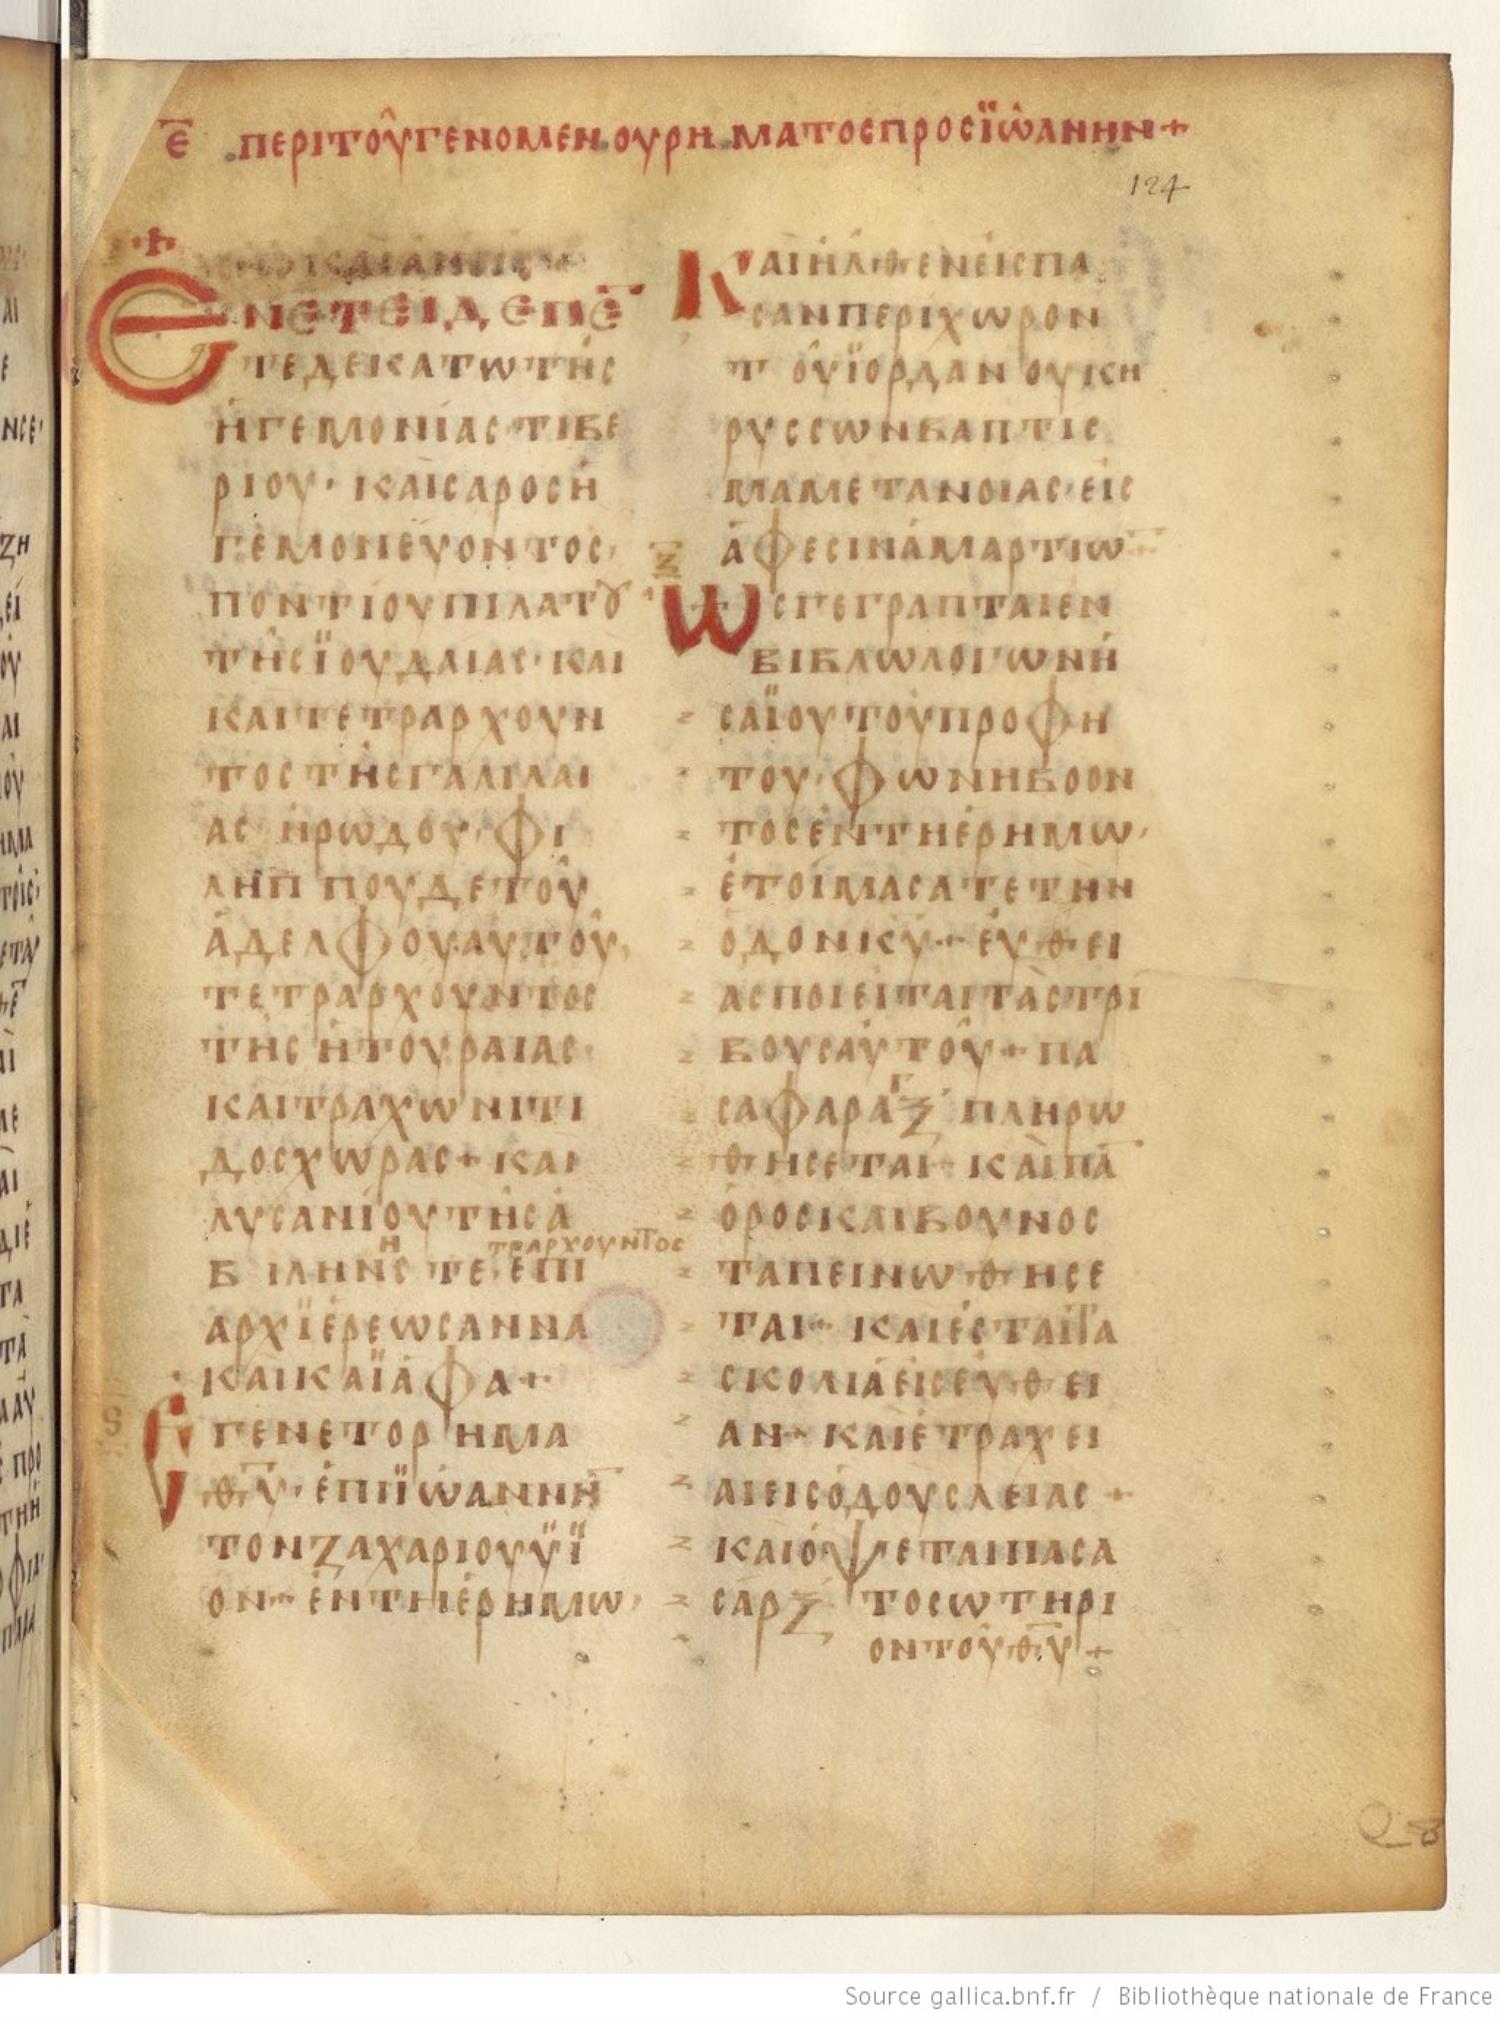 Ε̅ ΠΕΡΙΤΟΥ͂ΓΕΝΟΜΕΝΟΥΡΗΜΑΤΟΣΠΡΟΣΪΩΑΝΗΝ+
124
ΕΝΕΤΕΙΔΕΠΕ̅
ΤΕΔΕΚΑΤΩΤΗΣ
ΗΓΕΜΟΝΙΑΣΤΙΒΕ
ΡΙΟΥ·ΚΑΙΣΑΡΟΣΗ
ΓΕΜΟΝΕΥΟΝΤΟΣ·
ΠΟΝΤΙΟΥΠΙΛΑΤȢ
ΤΗΣΪΟΥΔΑΙΑΣ·ΚΑΙ
ΚΑΙΤΕΤΡΑΡΧΟΥΝ
ΤΟΣΤΗΣΓΑΛΙΛΑΙ
ΑΣ ΗΡΩΔΟΥ·ΦΙ
ΛΗΠΠΟΥΔΕΤΟΥ
ΑΔΕΛΦΟΥΑΥΤΟΥ,
ΤΕΤΡΑΡΧΟΥΝΤΟΣ
ΤΗΣΗΤΟΥΡΑΙΑΣ·
ΚΑΙΤΡΑΧΩΝΙΤΙ
ΔΟΣΧΩΡΑΣ+ΚΑΙ
ΛΥΣΑΝΙΟΥΤΗΣΑ
Η ΤΡΑΡΧΟΥΝΤΟΣ
ΒΙΛΗΝΣ ΤΕ·ΕΠΙ
ΑΡΧΪΕΡΕΩΣΑΝΝΑ
ΚΑΙΚΑΪΑΦΑ+
S
ΕΓΕΝΕΤΟΡΗΜΑ
Θ̅Υ̅·ΕΠΙΪΩΑΝΝΗ̅
ΤΟΝΖΑΧΑΡΙΟΥΫΪ
ΟΝ+ΕΝΤΗΕΡΗΜΩ,
ΚΑΙΗΛΘΕΝΕΙΣΠΑ
ΣΑΝΠΕΡΙΧΩΡΟΝ
ΤΟΥΪΟΡΔΑΝΟΥΚΗ
ΡΥΣΣΩΝΒΑΠΤΙΣ
ΜΑΜΕΤΑΝΟΙΑΣ·ΕΙΣ
ΑΦΕΣΙΝΑΜΑΡΤΙΩ̅
ΩΣΓΕΓΡΑΠΤΑΙΕΝ
ΒΙΒΛΩΛΟΓΩΝΗ
ΣΑΪΟΥΤΟΥΠΡΟΦΗ
ΤΟΥ·ΦΩΝΗΒΟΟΝ
ΤΟΣΕΝΤΗΕΡΗΜΩ·
ΕΤΟΙΜΑΣΑΤΕΤΗΝ
ΟΔΟΝΚ̅Υ̅+ΕΥΘΕΙ
ΑΣΠΟΙΕΙΤΑΙΤΑΣΤΡΙ
ΒΟΥΣΑΥΤΟΥ+ΠΑ
Γ
ΣΑΦΑΡΑΞ ΠΛΗΡΩ
ΘΗΣΕΤΑΙ+ΚΑΙΠΑ̅
ΟΡΟΣΚΑΙΒΟΥΝΟΣ
ΤΑΠΕΙΝΩΘΗΣΕ
ΤΑΙ+ΚΑΙΕΣΤΑΙΤΑ
ΣΚΟΛΙΑΕΙΣΕΥΘΕΙ
ΑΝ+ΚΑΙΕΤΡΑΧΕΙ
ΑΙΕΙΣΟΔΟΥΣΛΕΙΑΣ+
ΚΑΙΟΨΕΤΑΙΠΑΣΑ
ΣΑΡΞ ΤΟΣΩΤΗΡΙ
ΟΝΤΟΥΘ̅Υ̅+
Source gallica.bnf.fr / Bibliothèque nationale de France